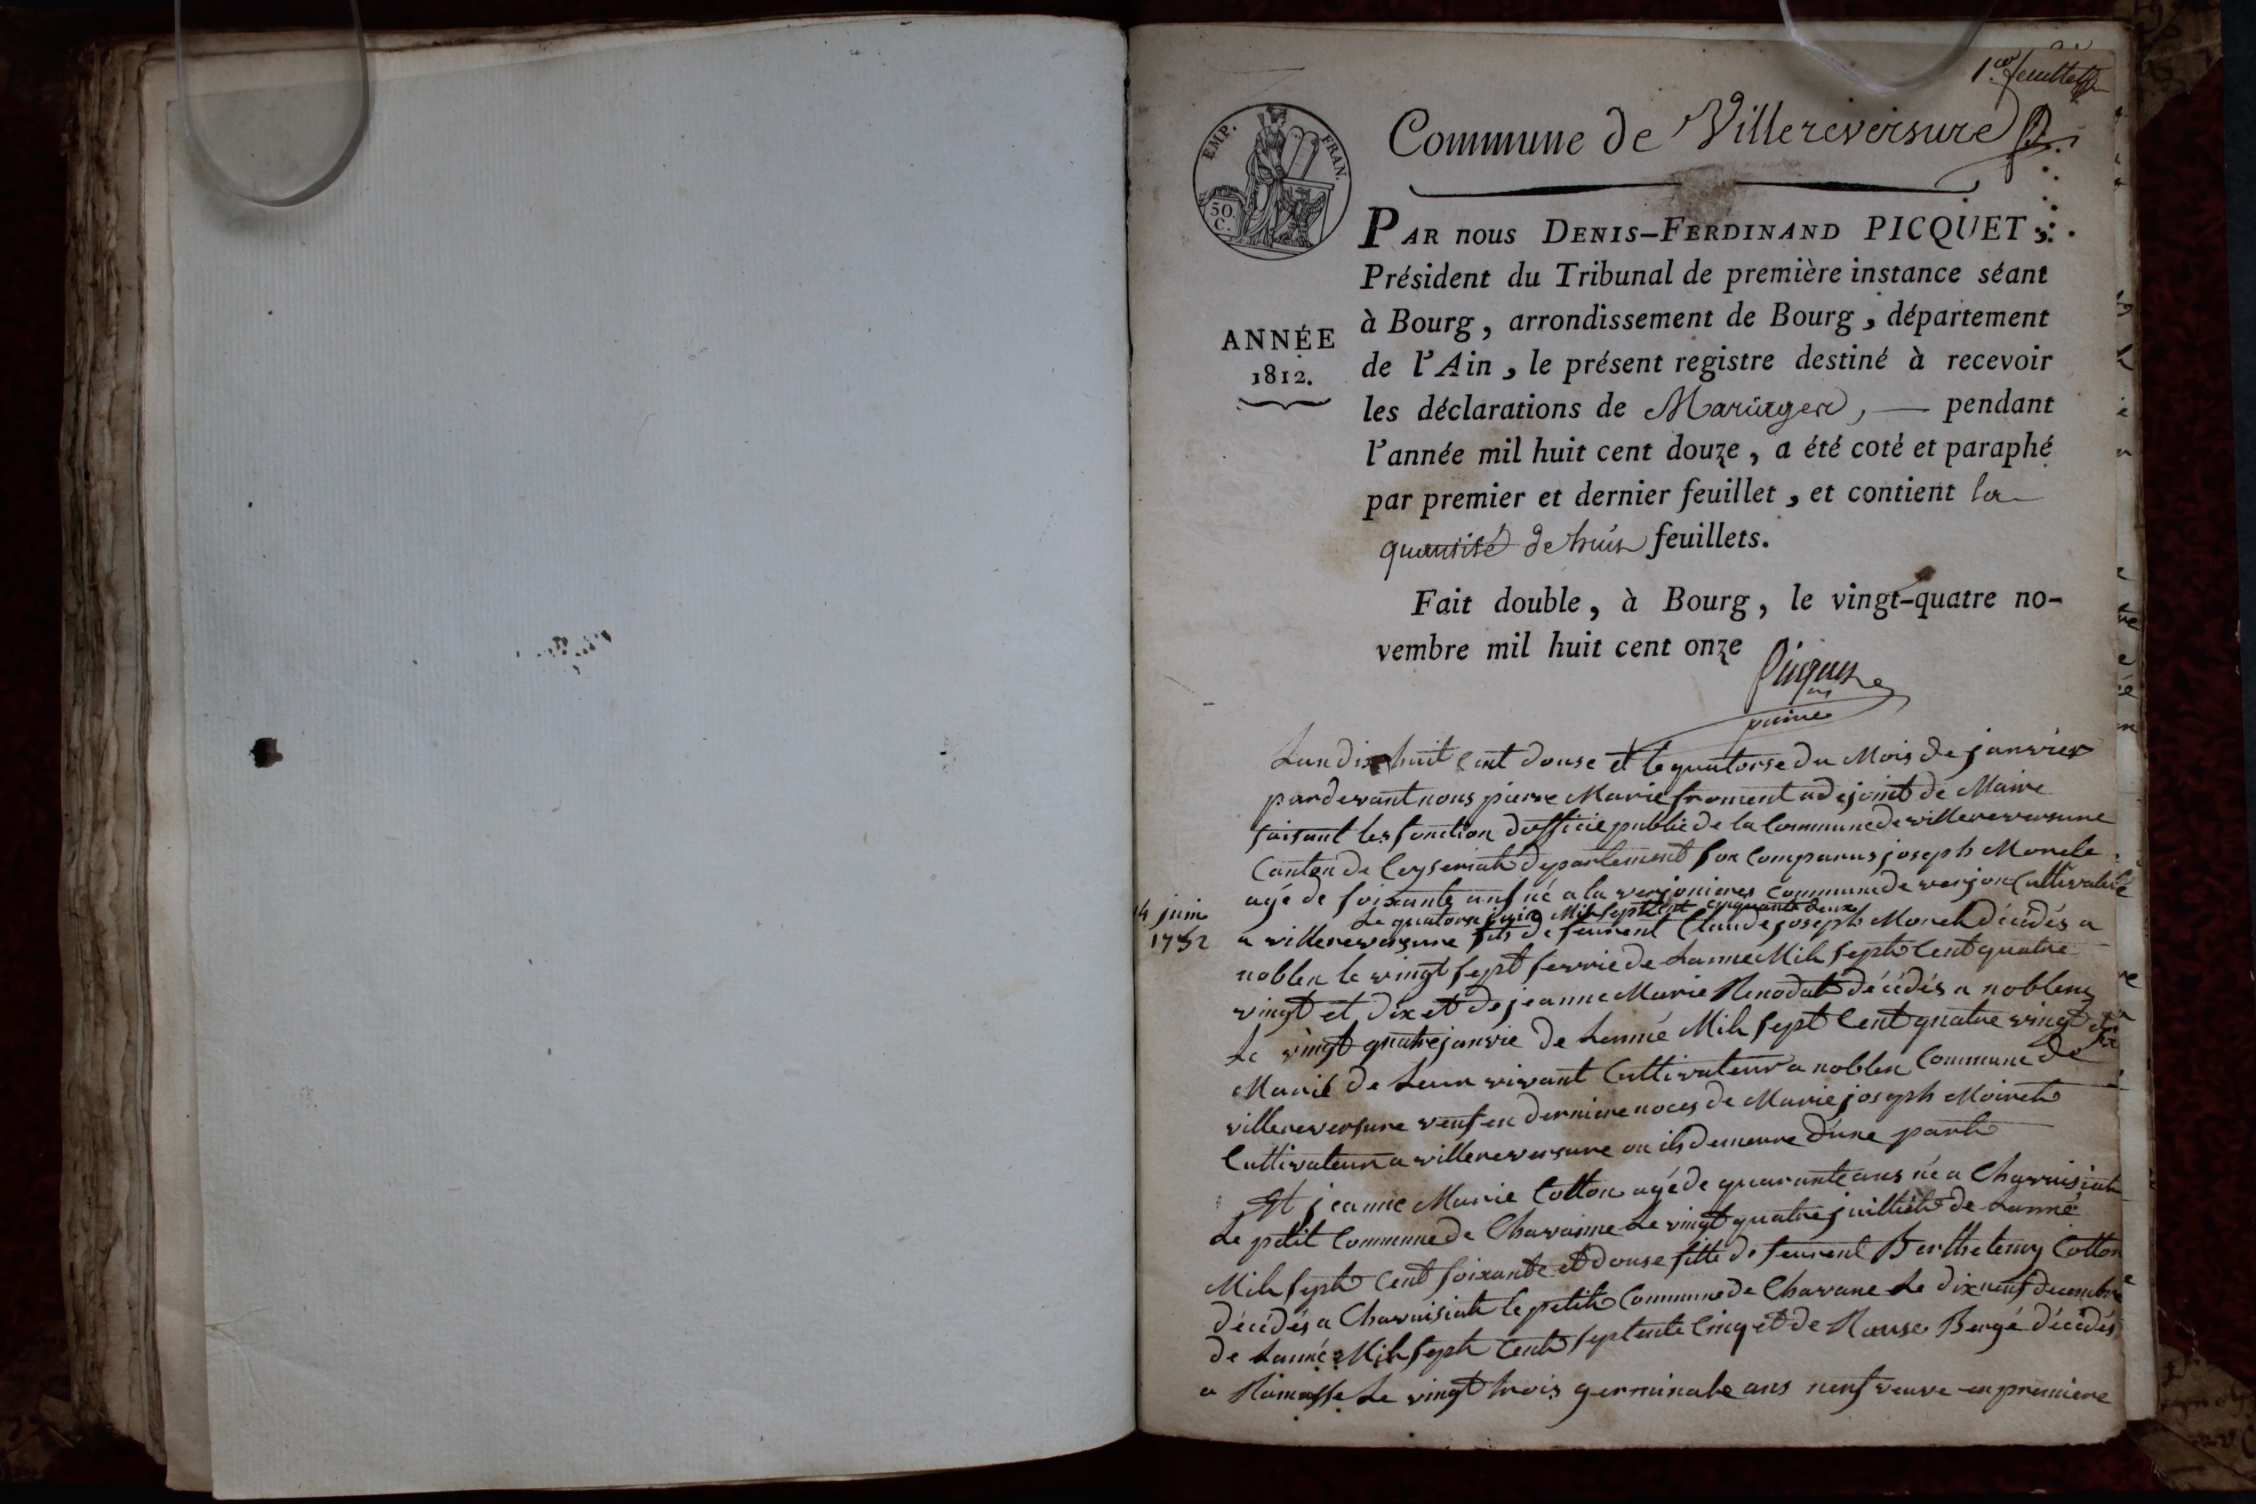 1er feuillet
EMP. FRAN.
50.
C.
Commune de Villereversure
PAR nous DENIS-FERDINAND PICQUET,
Président du Tribunal de première instance séant
à Bourg, arrondissement de Bourg, département
de l'Ain, le présent registre destiné à recevoir
les déclarations de Mariages, — pendant
l'année mil huit cent douze, a été coté et paraphé
par premier et dernier feuillet, et contient la
quantité de huit feuillets.
ANNÉE
1812.
Fait double, à Bourg, le vingt-quatre no-
vembre mil huit cent onze
Picquet
Lan dix huit Cent douse et le quatorse du Mois de janvier
pardevant nous pierre Marie froment adejoint de Maire
faisant les fonction dofficié public de la Commune de villereversure
Canton de Ceyseriat departement son Comparus joseph Monele
agé de soixante ans né a la verjonieres Commune de verjon Cultivateur
Le quatorse juin Mil sept Cent cinquante deux
14 juin
1752
a villereversure fils de feurent Claude joseph Morel décédés a
noblen le vingt sept fevrié de Lanne Mil sept Cent quatre
vingt et dix et de jeanne Marie Renodat décédés a noblens
Le vingt quatre janvié de Lannée Mil sept Cent quatre vingt dix
Marié de Leur vivant Cultivateur a noblen Commune de
villereversure veuf en derniere noces de Marie joseph Moiret
Cultivateur a villereversure ou ils demeure d'une part
Et jeanne Marie Cotton agé de quarante ans né a Chavuisiat
Le petit Commune de Chavanne Le vingt quatre juilliet de Lanné
Mil sept Cent soixante et douse fille de feurent Berthelemy Cotton
décédés a Chavuisiat le petit Commune de Chavane Le dix neuf decembre
de Lanné Mil sept Cent septente Cinq et de Rouse Bergé décédés
a Ramasse Le vingt trois germinale ans neuf veuve en premiere